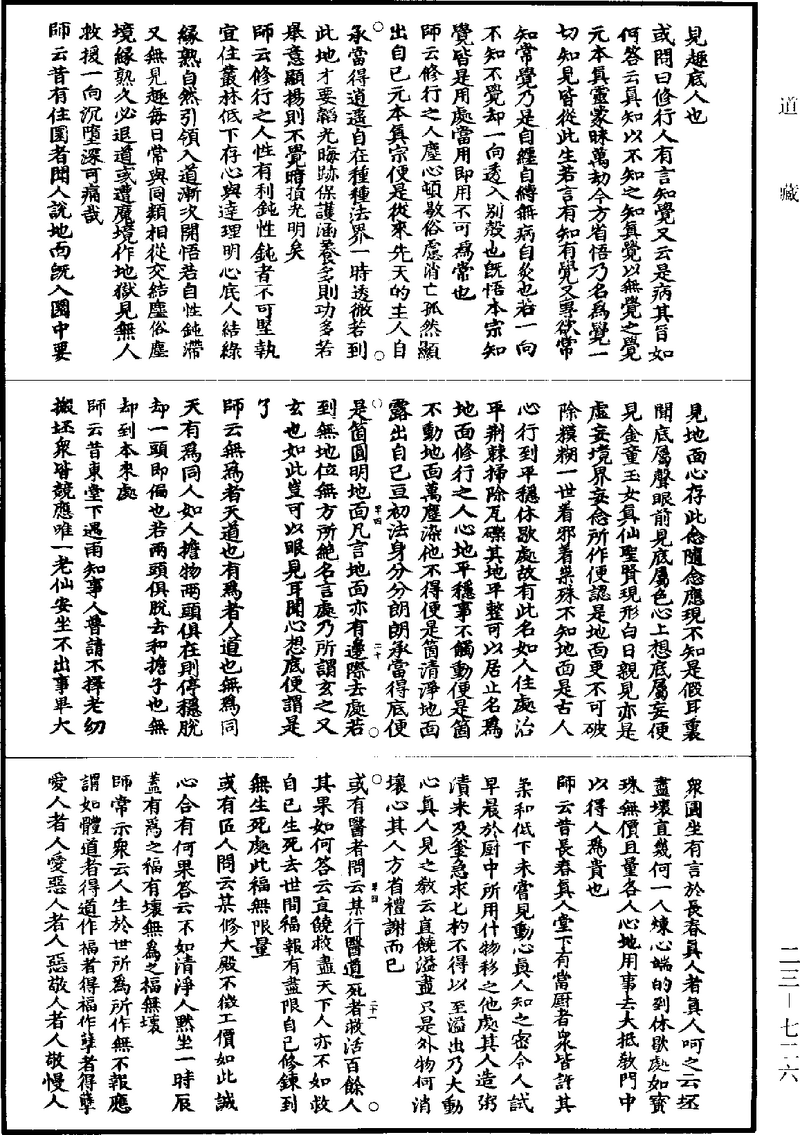 道藏
見趣底人也
或問曰修行人有言知覺又云是病其旨如
何答云真知以不知之知真覺以無覺之覺
元本真靈蒙昧萬劫今方省悟乃名為覺一
切知見皆從此生若言有知有覺又專欲常
知常覺乃是自纏自縛無病自灸也若一向
不知不覺却一向透入別殼也既悟本宗知
覺皆是用處當用即用不可為常也
師云修行之人塵心頓歇俗慮消亡孤然顯
出自己元本真宗便是從來先天的主人自
承當得逍遙自在種種法界一時透徹若到
此地才要韜光晦跡保護涵養多則功多若
舉意顯揚則不覺暗損光明矣
師云修行之人性有利鈍性鈍者不可堅執
宜住叢林低下存心與達理明心底人結緣
緣熟自然引領入道漸次開悟若自性鈍滯
又無見趣每日常與同類相從交結塵俗塵
境緣熟久必退道或遭魔境作地獄見無人
救援一向沉墮深可痛哉
師云昔有住圜者聞人說地面既入圜中要
見地面心存此念隨念應現不知是假耳裏
聞底屬聲眼前見底屬色心上想底屬妄便
見金童玉女真仙聖賢現形白日親見亦是
虛妄境界妄念所作便認是地面更不可破
除模糊一世着邪着祟殊不知地面是古人
心行到平穩休歇處故有此名如人住處治
平荆棘掃除瓦礫其地平整可以居止名為
地面修行之人心地平穩事不觸動便是箇
不動地面萬塵染他不得便是箇清淨地面
露出自己亘初法身分分朗朗承當得底便
是箇圓明地面凡言地面亦有邊際去處若
到無地位無方所絕名言處乃所謂玄之又
玄也如此豈可以眼見耳聞心想底便謂是
了
師云無為者天道也有為者人道也無為同
天有為同人如人擔物兩頭俱在則停穩脫
却一頭即偏也若兩頭俱脫去和擔子也無
却到本來處
師云昔東堂下遇雨知事人普請不擇老幼
搬坯衆皆競應唯一老仙安坐不出事畢大
衆圜坐有言於長春真人者真人呵之云坯
盡壞直幾何一人煉心端的到休歇處如寳
珠無價且量各人心地用事去大抵教門中
以得人為貴也
師云昔長春真人堂下有當厨者衆皆許其
柔和低下未嘗見動心真人知之密令人試
早晨於厨中所用什物移之他處其人造粥
漬米及釜急求七杓不得以至溢出乃大動
心真人見之教云直饒溢盡只是外物何消
壞心其人方省禮謝而已
或有醫者問云某行醫道死者救活百餘人
其果如何答云直饒救盡天下人亦不如救
自己生死去世間福報有盡限自己修鍊到
無生死處此福無限量
或有匠人問云某修大殿不徵工價如此誠
心合有何果答云不如清淨人默坐一時辰
蓋有為之福有壞無為之福無壞
師常示衆云人生於世所為所作無不報應
謂如體道者得道作福者得福作孽者得孽
愛人者人愛惡人者人惡敬人者人敬慢人
二三－七二六